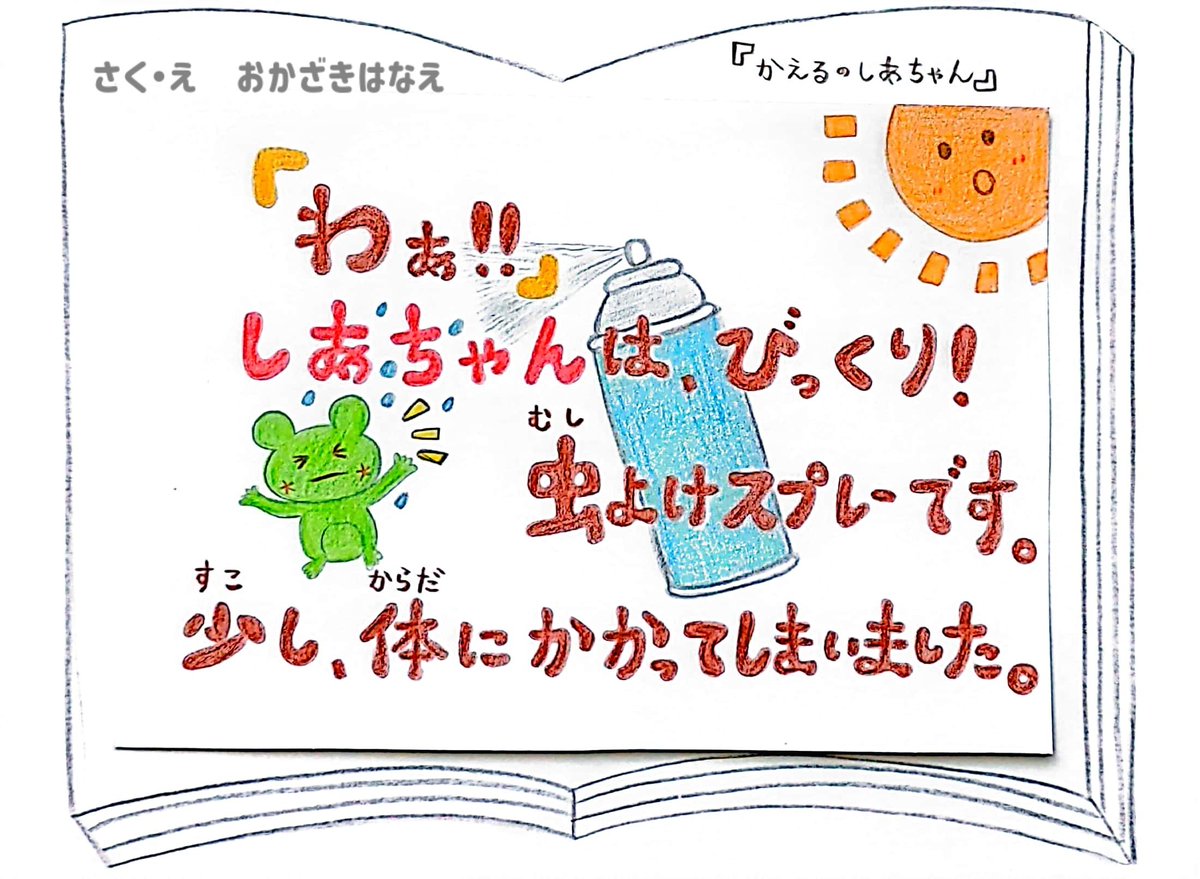 さく・え おかざきはなえ
『かえるのしあちゃん』
『わぁ!!』
しあちゃんは、びっくり!
むし
虫よけスプレーです。
すこ からだ
少し、体にかかってしまいました。